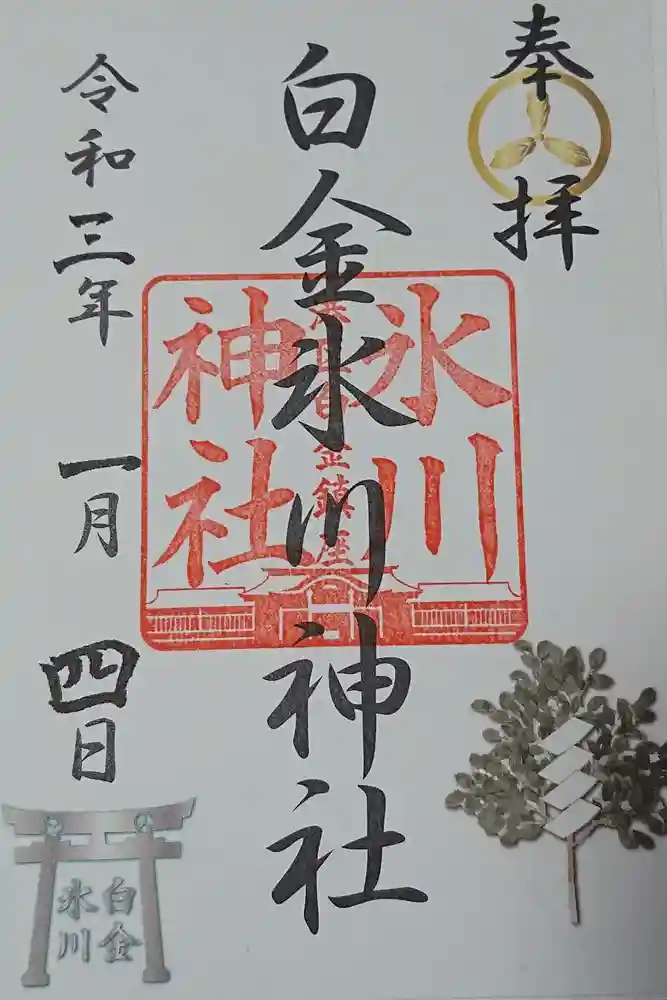 奉拝
白金氷川神社
氷川
神社
金鎮座
令和三年
一月
四日
白金
氷川